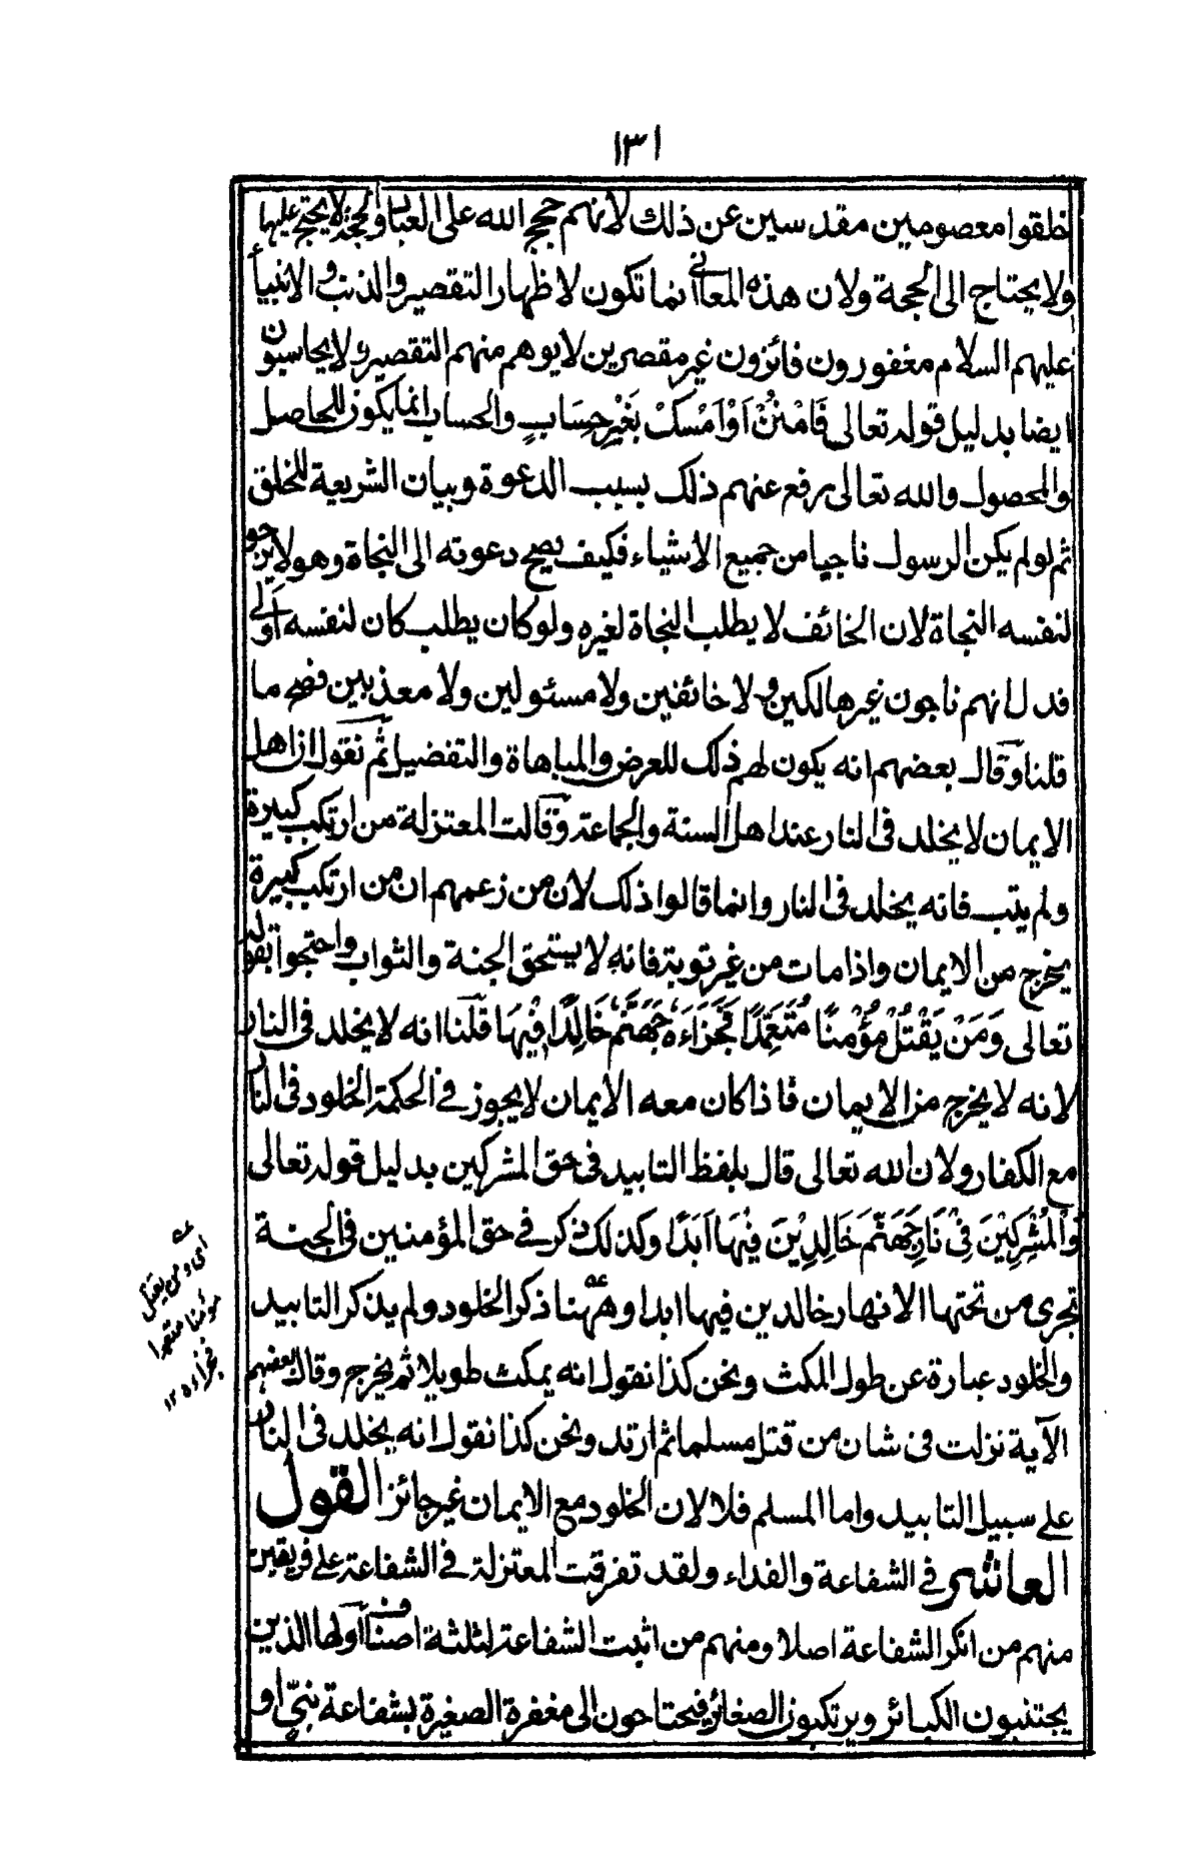 ١٣١
خلقوا معصومين مقدسين عن ذلك لانهم حجج الله على العباد والحجة لا يحتج عليها
ولا يحتاج الى الحجة ولان هذه المعاني انما تكون لاظهار التقصير والذنب والانبياء
عليهم السلام مغفورون فائزون غير مقصرين لا يوهم منهم التقصير ولا يحاسبون
ايضا بدليل قوله تعالى فَامْنُنْ اَوْ اَمْسِكْ بِغَيْرِ حِسَابٍ والحساب انما يكون للحاصل
والمحصول والله تعالى رفع عنهم ذلك بسبب الدعوة وبيان الشريعة للخلق
ثم لو لم يكن الرسول ناجيا من جميع الاشياء فكيف يصح دعوته الى النجاة وهو لا يرجو
لنفسه النجاة لان الخائف لا يطلب النجاة لغيره ولو كان يطلب كان لنفسه اولى
فدل انهم ناجون غير هالكين ولا خائفين ولا مسئولين ولا معذبين فصح ما
قلنا وقال بعضهم انه يكون لهم ذلك للعرض والمباهاة والتفضيل ثم نقول ان اهل
الايمان لا يخلد فى النار عند اهل السنة والجماعة وقالت المعتزلة من ارتكب كبيرة
ولم يتب فانه يخلد فى النار وانما قالوا ذلك لان من زعمهم ان من ارتكب كبيرة
يخرج من الايمان واذا مات من غير توبة فانه لا يستحق الجنة والثواب واحتجوا بقوله
تعالى وَمَنْ يَقْتُلْ مُؤْمِنًا مُتَعَمِّدًا فَجَزَاءُهٗ جَهَنَّمُ خَالِدًا فِيْهَا قلنا انه لا يخلد فى النار
لانه لا يخرج من الايمان فاذا كان معه الايمان لا يجوز فى الحكمة الخلود فى النار
مع الكفار ولان الله تعالى قال بلفظ التابيد فى حق المشركين بدليل قوله تعالى
وَالْمُشْرِكِيْنَ فِىْ نَارِ جَهَنَّمَ خَالِدِيْنَ فِيْهَا اَبَدًا وكذلك ذكر فى حق المؤمنين فى الجنة
تجرى من تحتها الانهار خالدين فيها ابدا وههنا ذكر الخلود ولم يذكر التابيد
والخلود عبارة عن طول المكث ونحن كذا نقول انه يمكث طويلا ثم يخرج وقال بعضهم
الآية نزلت فى شان من قتل مسلما ثم ارتد ونحن كذا نقول انه يخلد فى النار
على سبيل التابيد واما المسلم فلا لان الخلود مع الايمان غير جائز القول
العاشر فى الشفاعة والفداء ولقد تفرقت المعتزلة فى الشفاعة على فريقين
منهم من انكر الشفاعة اصلا ومنهم من اثبت الشفاعة لثلثة اصناف اولها الذين
يجتنبون الكبائر ويرتكبون الصغائر فيحتاجون الى مغفرة الصغيرة بشفاعة نبيّ او
عه
اى ومن يقتل
مؤمنا متعمدا
فجزاءه ١٢